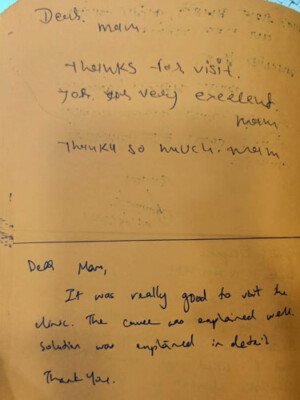 Dear
mam.
Thanks for visit.
You are very excellent
mam
Thanks so much mam.
Dear Mam,
It was really good to visit the
clinic. The cause was explained well.
Solution was explained in detail
Thank You.